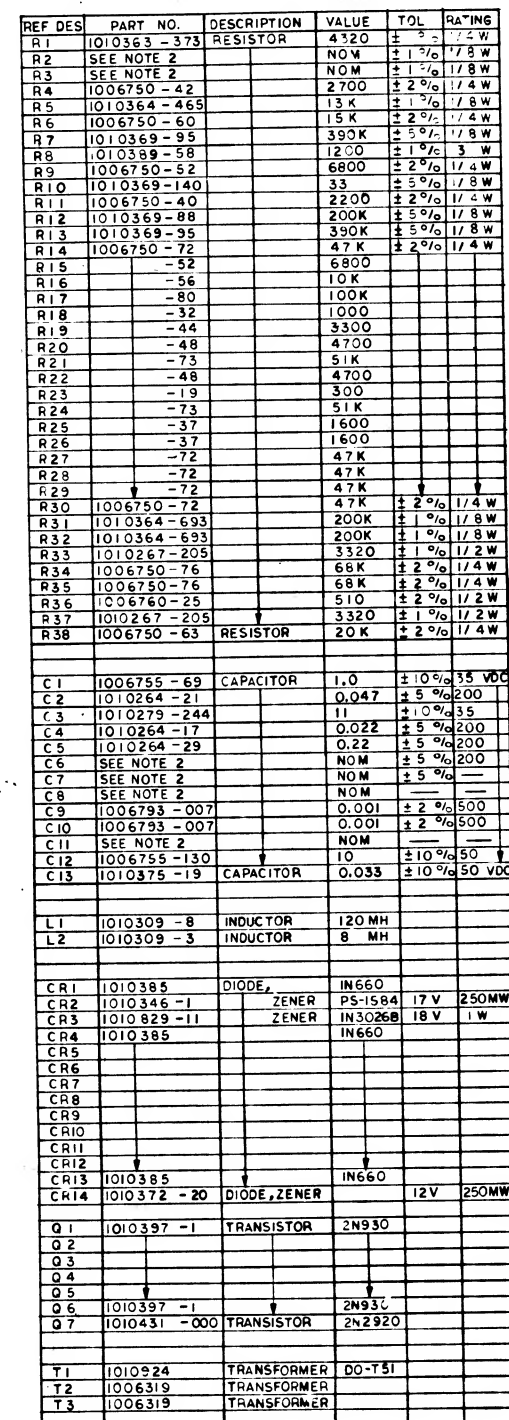 REF DES PART NO. DESCRIPTION VALUE TOL RATING
R1 1010363-373 RESISTOR 4320 ± W
R2 SEE NOTE 2 NOM ±1% 1/8W
R3 SEE NOTE 2 NOM ±1% 1/8W
R4 1006750-42 2700 ±2% 1/4W
R5 1010364-465 13K ±1% 1/8W
R6 1006750-60 15K ±2% 1/4W
R7 1010369-95 390K ±5% 1/8W
R8 1010389-58 1200 ±1% 3 W
R9 1006750-52 6800 ±2% 1/4W
R10 1010369-140 33 ±5% 1/8W
R11 1006750-40 2200 ±2% 1/4W
R12 1010369-88 200K ±5% 1/8W
R13 1010369-95 390K ±5% 1/8W
R14 1006750-72 47K ±2% 1/4W
R15 -52 6800
R16 -56 10K
R17 -80 100K
R18 -32 1000
R19 -44 3300
R20 -48 4700
R21 -73 51K
R22 -48 4700
R23 -19 300
R24 -73 51K
R25 -37 1600
R26 -37 1600
R27 -72 47K
R28 -72 47K
R29 -72 47K
R30 1006750-72 47K ±2% 1/4W
R31 1010364-693 200K ±1% 1/8W
R32 1010364-693 200K ±1% 1/8W
R33 1010267-205 3320 ±1% 1/2W
R34 1006750-76 68K ±2% 1/4W
R35 1006750-76 68K ±2% 1/4W
R36 1006760-25 510 ±2% 1/2W
R37 1010267-205 3320 ±1% 1/2W
R38 1006750-63 RESISTOR 20K ±2% 1/4W
C1 1006755-69 CAPACITOR 1.0 ±10% 35 VDC
C2 1010264-21 0.047 ±5% 200
C3 1010279-244 11 ±10% 35
C4 1010264-17 0.022 ±5% 200
C5 1010264-29 0.22 ±5% 200
C6 SEE NOTE 2 NOM ±5% 200
C7 SEE NOTE 2 NOM ±5% —
C8 SEE NOTE 2 NOM — —
C9 1006793-007 0.001 ±2% 500
C10 1006793-007 0.001 ±2% 500
C11 SEE NOTE 2 NOM — —
C12 1006755-130 10 ±10% 50
C13 1010375-19 CAPACITOR 0.033 ±10% 50 VDC
L1 1010309-8 INDUCTOR 120 MH
L2 1010309-3 INDUCTOR 8 MH
CR1 1010385 DIODE, IN660
CR2 1010346-1 ZENER PS-1584 17V 250MW
CR3 1010829-11 ZENER IN3026B 18V 1W
CR4 1010385 IN660
CR5
CR6
CR7
CR8
CR9
CR10
CR11
CR12
CR13 1010385 IN660
CR14 1010372-20 DIODE, ZENER 12V 250MW
Q1 1010397-1 TRANSISTOR 2N930
Q2
Q3
Q4
Q5
Q6 1010397-1 2N930
Q7 1010431-000 TRANSISTOR 2N2920
T1 1010924 TRANSFORMER DO-T51
T2 1006319 TRANSFORMER
T3 1006319 TRANSFORMER